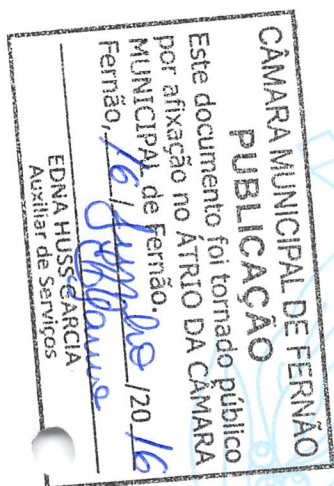 CÂMARA MUNICIPAL DE FERNÃO
PUBLICAÇÃO
Este documento foi tornado público
por afixação no ÁTRIO DA CÂMARA
MUNICIPAL de Fernão.
Fernão, 16 / Junho /20 16
EDNA HUSS GARCIA
Auxiliar de Serviços